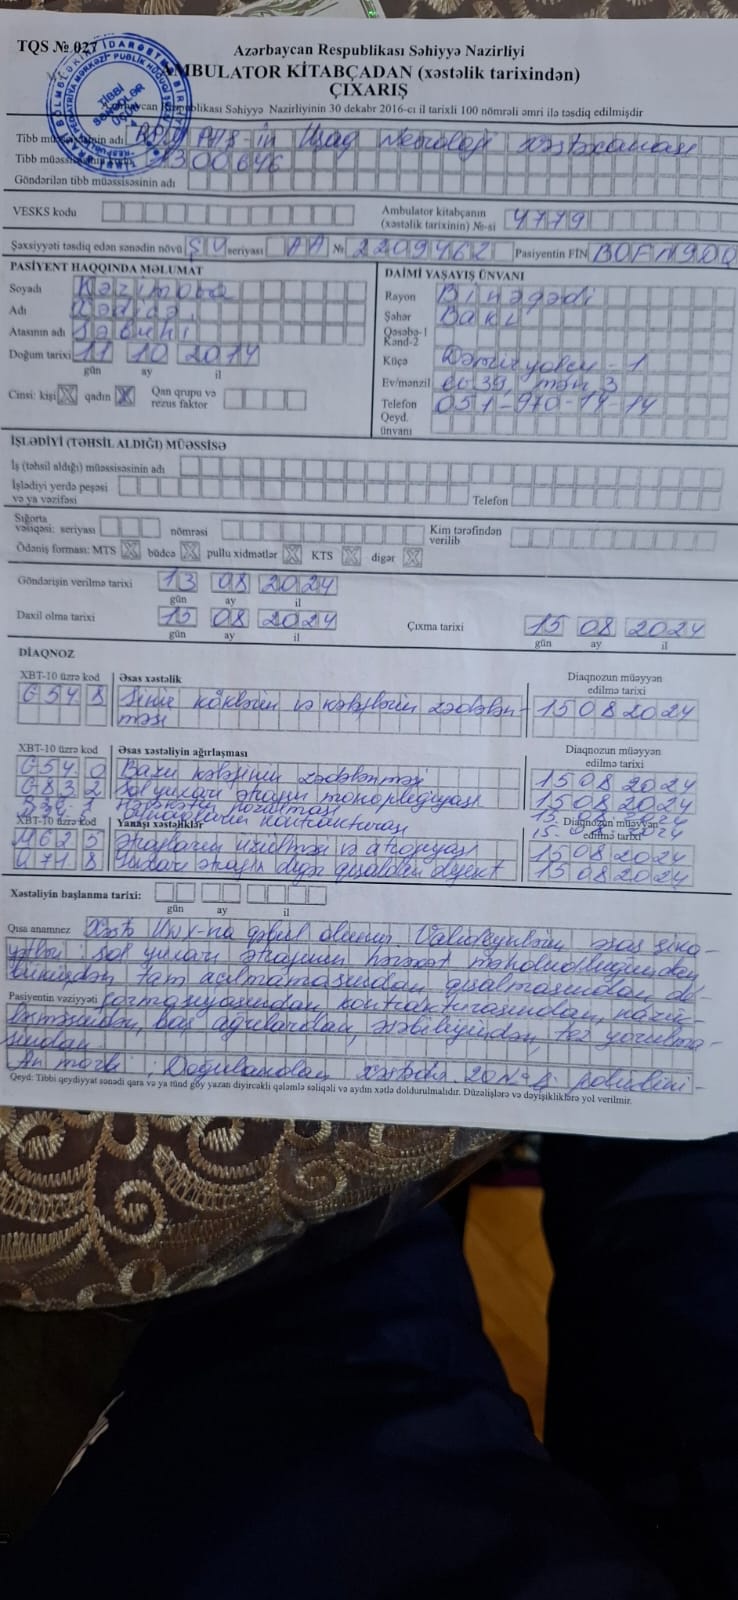 TQS № 027
Azərbaycan Respublikası Səhiyyə Nazirliyi
AMBULATOR KİTABÇADAN (xəstəlik tarixindən)
ÇIXARIŞ
Azərbaycan Respublikası Səhiyyə Nazirliyinin 30 dekabr 2016-cı il tarixli 100 nömrəli əmri ilə təsdiq edilmişdir
TİBBİ SƏNƏDLƏR ÜÇÜN
Tibb müəssisəsinin adı RPM PHŞ-in Uşaq Nevroloji xəstəxanası
Tibb müəssisəsinin kodu 1300646
Göndərilən tibb müəssisəsinin adı
VESKS kodu
Ambulator kitabçanın (xəstəlik tarixinin) №-si 4779
Şəxsiyyəti təsdiq edən sənədin növü ŞV seriyası AA № 2209462 Pasiyentin FİN
PASİYENT HAQQINDA MƏLUMAT
Soyadı Kazımova
Adı
Atasının adı Səbuhi
Doğum tarixi 11 10 2014
gün ay il
Cinsi: kişi qadın Qan qrupu və rezus faktor
DAİMİ YAŞAYIŞ ÜNVANI
Rayon Binəqədi
Şəhər Bakı
Qəsəbə-1
Kənd-2
Küçə Dəmiryolçu - 1
Ev/mənzil ev 39, mən 3
Telefon 051-970-14-14
Qeyd. ünvanı
İŞLƏDİYİ (TƏHSİL ALDIĞI) MÜƏSSİSƏ
İş (təhsil aldığı) müəssisəsinin adı
İşlədiyi yerdə peşəsi və ya vəzifəsi Telefon
Sığorta vəsiqəsi: seriyası nömrəsi Kim tərəfindən verilib
Ödəniş forması: MTS büdcə pullu xidmətlər KTS digər
Göndərişin verilmə tarixi 13 08 2024
gün ay il
Daxil olma tarixi 15 08 2024 Çıxma tarixi 15 08 2024
gün ay il gün ay il
DİAQNOZ
XBT-10 üzrə kod Əsas xəstəlik Diaqnozun müəyyən edilmə tarixi
G54 8 Sinir köklərin və kələflərin zədələn- 15 08 2024
məsi
XBT-10 üzrə kod Əsas xəstəliyin ağırlaşması Diaqnozun müəyyən edilmə tarixi
G54 0 Bazu kələfinin zədələnməsi 15 08 2024
G83 2 Sol yuxarı ətrafın monoplegiyası 15 08 2024
XBT-10 üzrə kod Yanaşı xəstəliklər Diaqnozun müəyyən edilmə tarixi
M62 5 Əzələlərin üzülməsi və atrofiyası 15 08 2024
Q71 8 Yuxarı ətrafın digər qısaldan defekt 15 08 2024
Xəstəliyin başlanma tarixi:
gün ay il
Qısa anamnez Xəstə UNX-na qəbul olunur. Valideynlərin əsas şika-
yətləri: sol yuxarı ətrafının hərəkət məhdudluğundan
tam açılmamasından, qısalmasından, de-
Pasiyentin vəziyyəti formasiyasından, kontrakturasından, nazik-
ləşməsindən, baş ağrılardan, əsəbiliyindən, tez yorulma-
sından.
An morbi: Doğulandan xəstədir. 20 №-li poliklini-
Qeyd: Tibbi qeydiyyat sənədi qara və ya tünd göy yazan diyircəkli qələmlə səliqəli və aydın xətlə doldurulmalıdır. Düzəlişlərə və dəyişikliklərə yol verilmir.